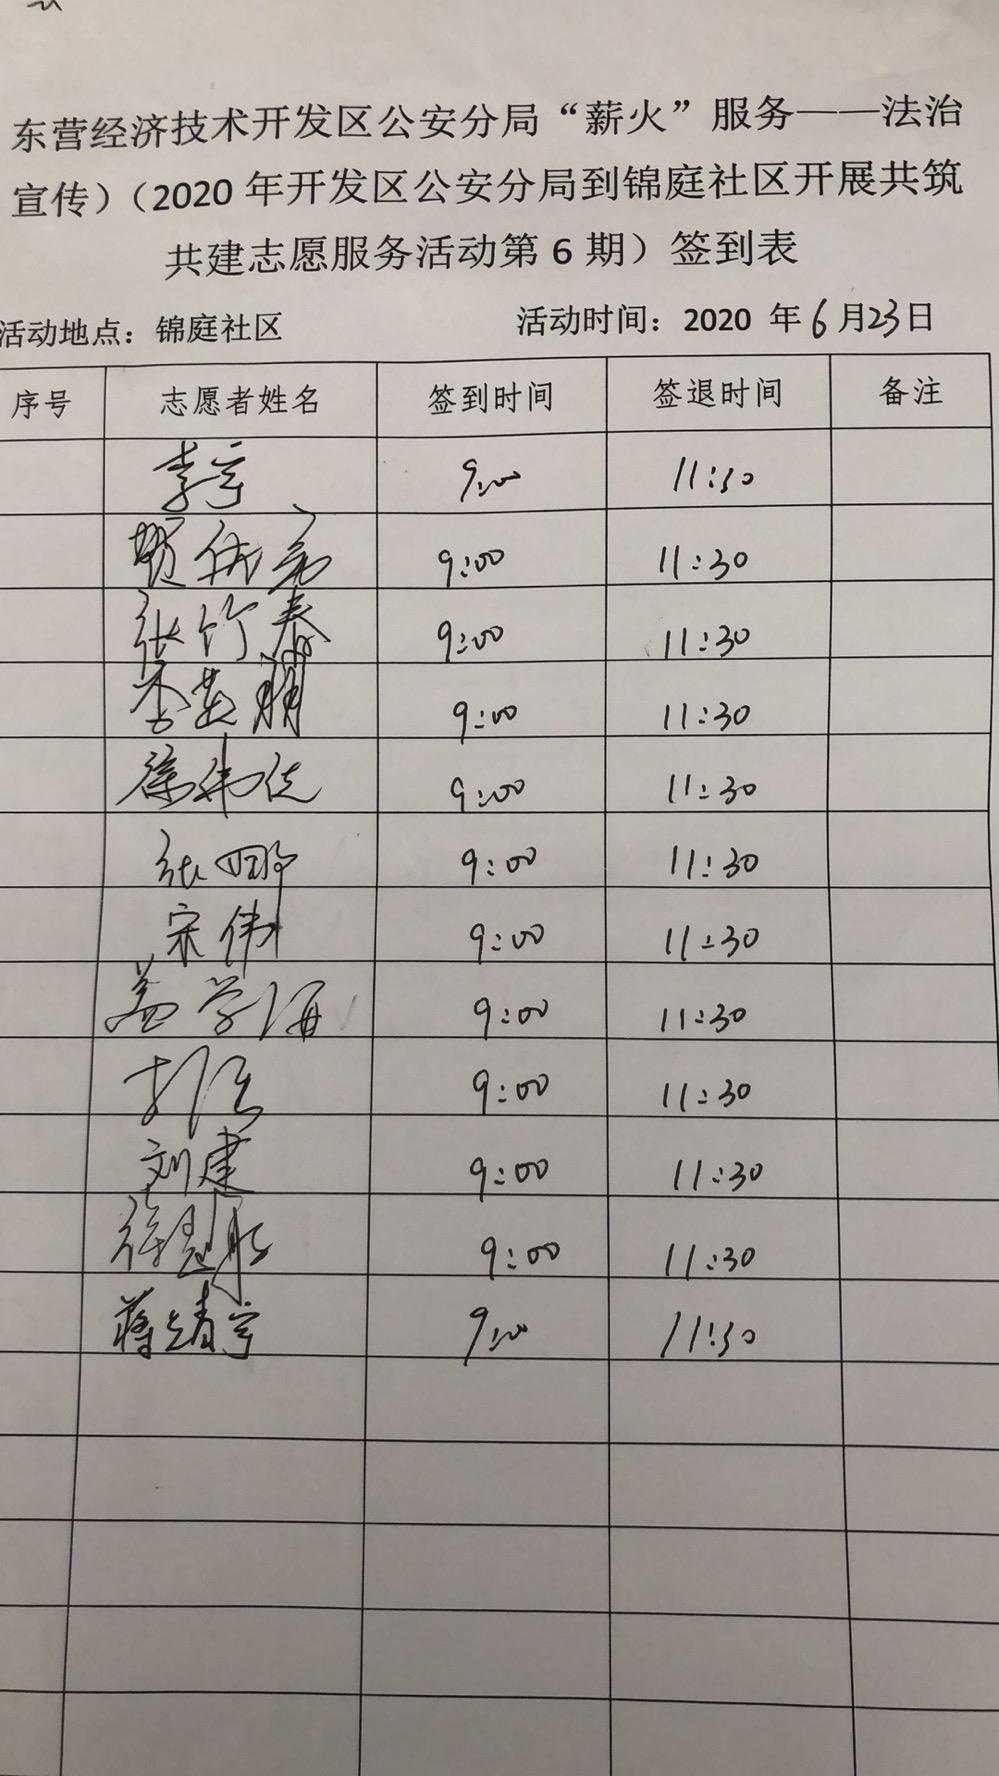 东营经济技术开发区公安分局“薪火”服务——法治
宣传）（2020 年开发区公安分局到锦庭社区开展共筑
共建志愿服务活动第 6 期）签到表
活动地点：锦庭社区 活动时间：2020 年 6 月 23 日
序号 志愿者姓名 签到时间 签退时间 备注
李宇 9:00 11:30
贾 9:00 11:30
张竹春 9:00 11:30
李英朋 9:00 11:30
徐伟 9:00 11:30
张娜 9:00 11:30
宋伟 9:00 11:30
盖学海 9:00 11:30
9:00 11:30
刘建 9:00 11:30
9:00 11:30
蒋靖宇 9:00 11:30